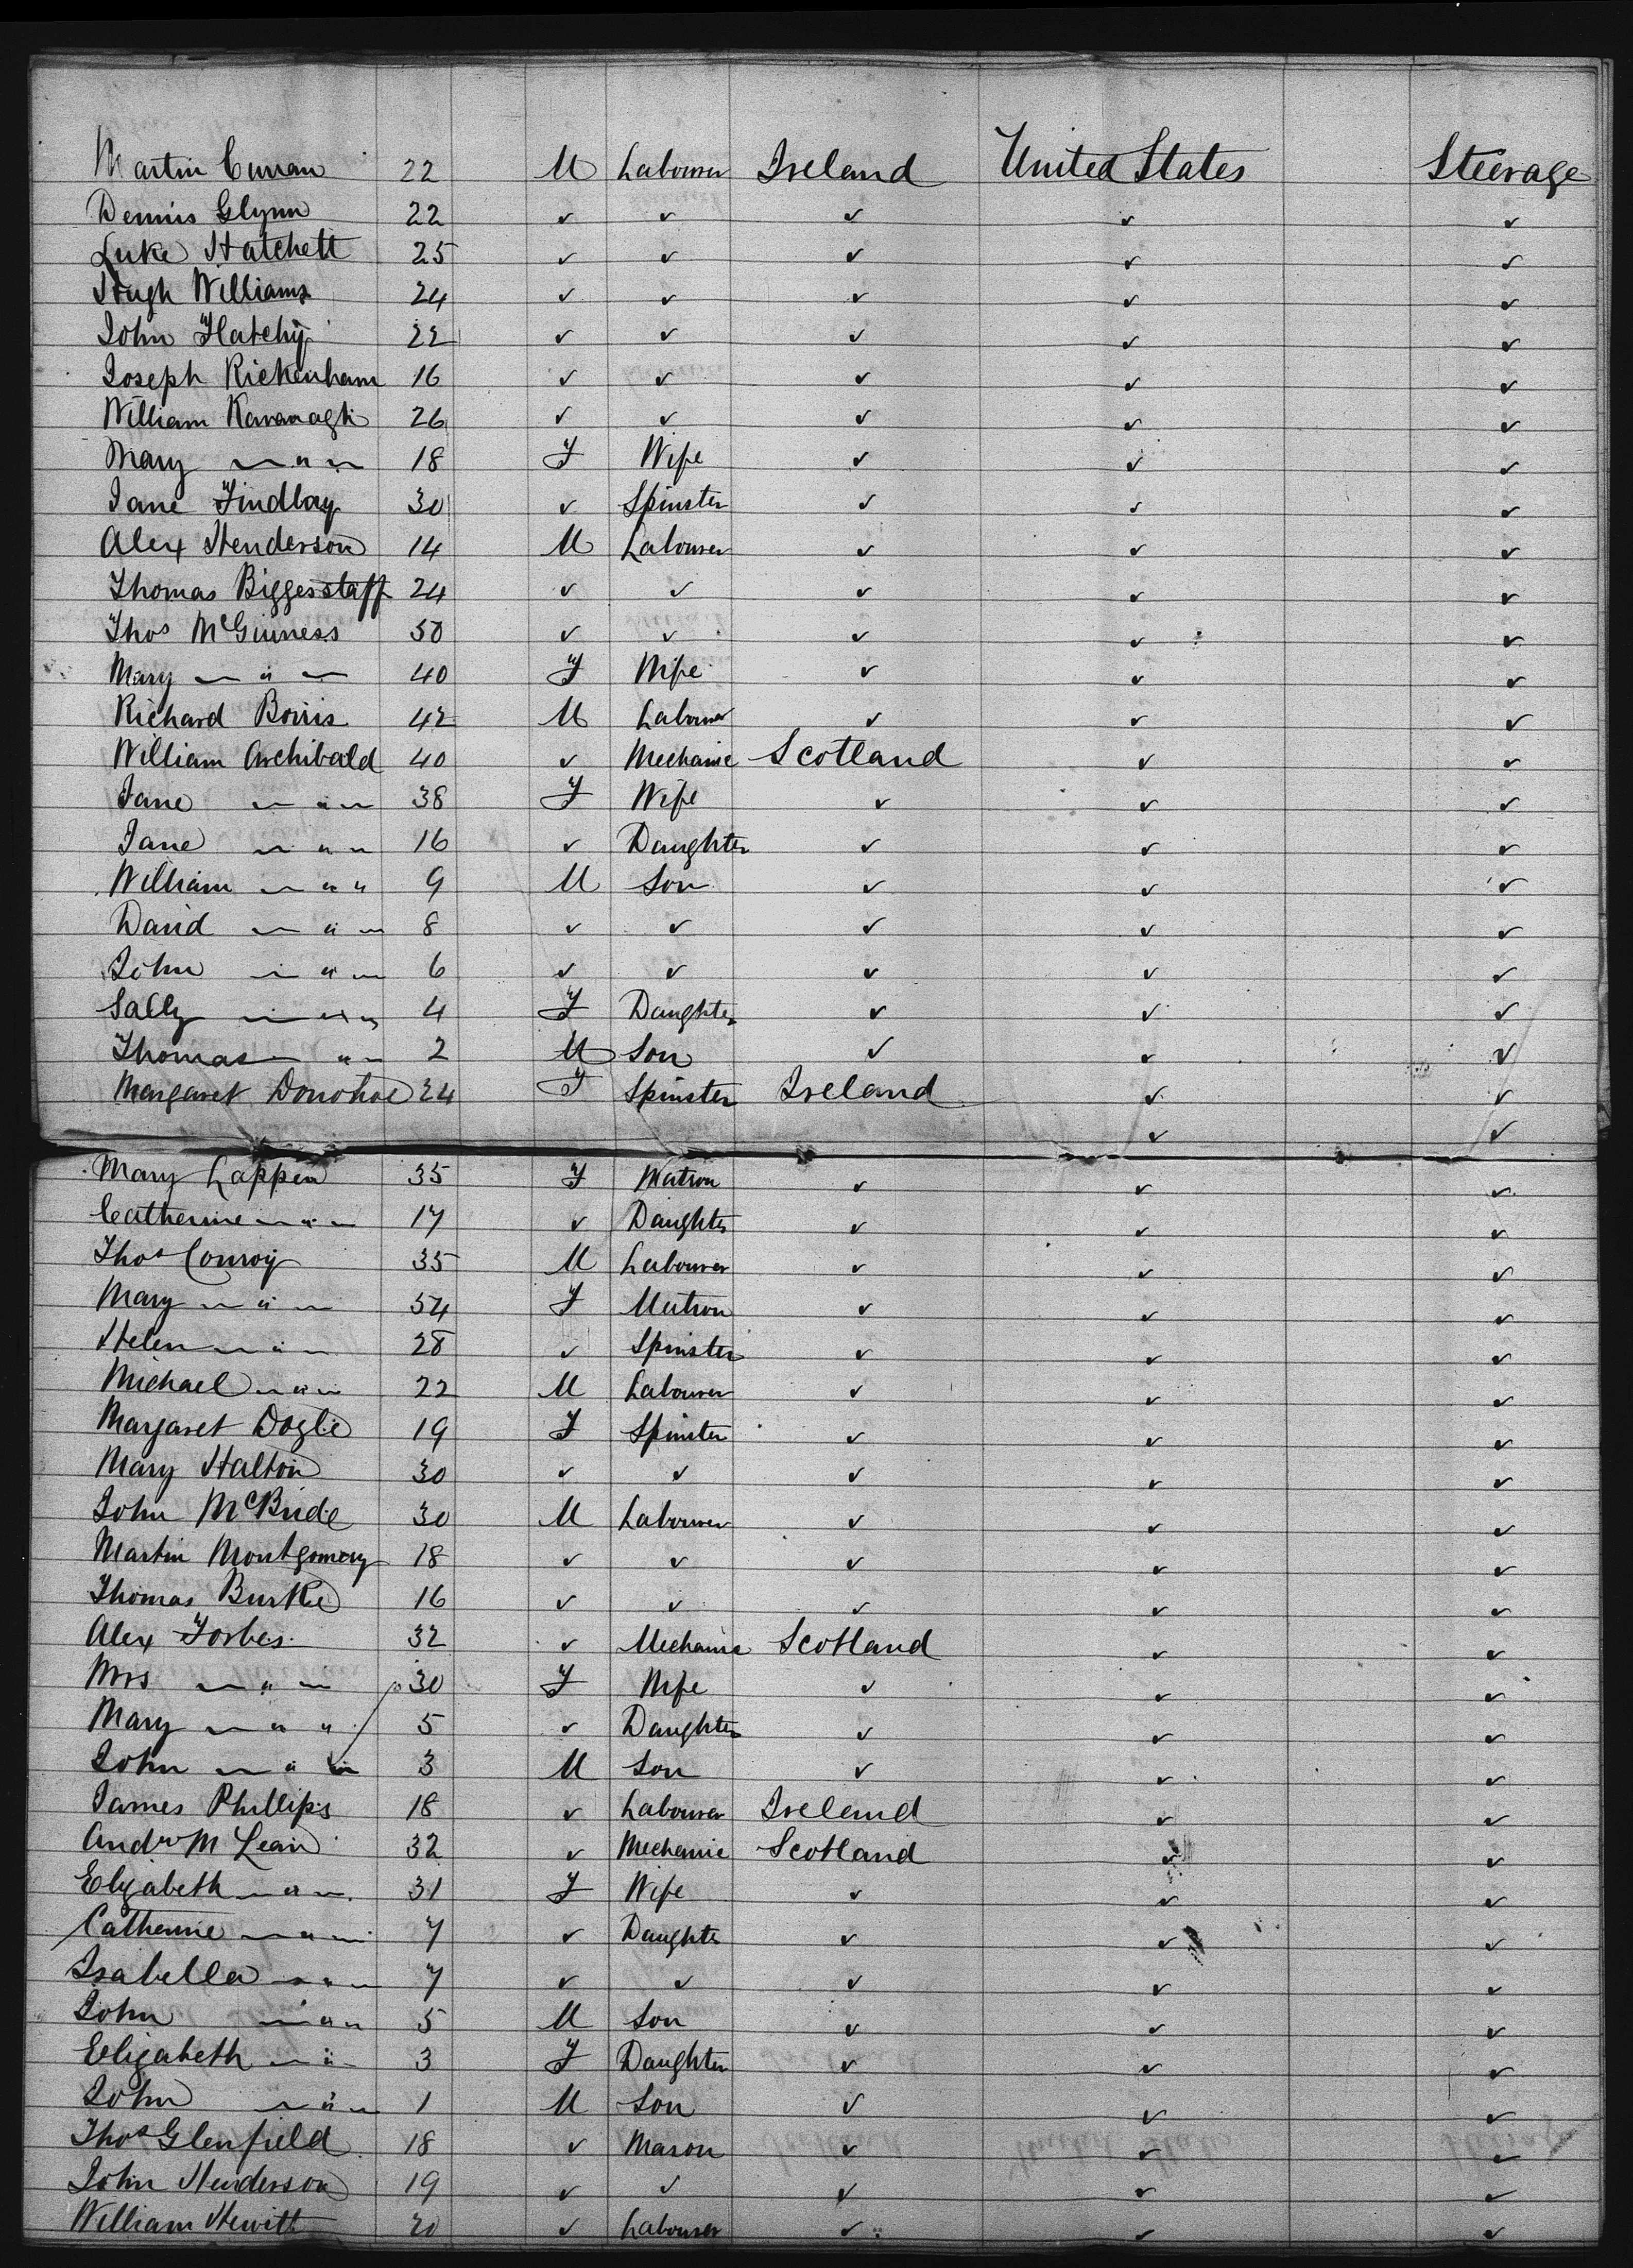 Martin Curran 22 M Labourer Ireland United States Steerage
Dennis Glynn 22 ✓ ✓ ✓ ✓ ✓
Luke Hatchett 25 ✓ ✓ ✓ ✓ ✓
Hugh Williams 24 ✓ ✓ ✓ ✓ ✓
John 22 ✓ ✓ ✓ ✓ ✓
Joseph 16 ✓ ✓ ✓ ✓ ✓
William Kavanagh 26 ✓ ✓ ✓ ✓ ✓
Mary — " — 18 F Wife ✓ ✓ ✓
Jane Findlay 30 ✓ Spinster ✓ ✓ ✓
Alex Henderson 14 M Labourer ✓ ✓ ✓
Thomas Biggesstaff 24 ✓ ✓ ✓ ✓ ✓
Thos McGinness 50 ✓ ✓ ✓ ✓ ✓
Mary — " — 40 F Wife ✓ ✓ ✓
Richard 42 M Labourer ✓ ✓ ✓
William Archibald 40 ✓ Mechanic Scotland ✓ ✓
Jane — " — 38 F Wife ✓ ✓ ✓
Jane — " — 16 ✓ Daughter ✓ ✓ ✓
William — " " 9 M Son ✓ ✓ ✓
David — " — 8 ✓ ✓ ✓ ✓ ✓
John — " — 6 ✓ ✓ ✓ ✓ ✓
Sally — " — 4 F Daughter ✓ ✓ ✓
Thomas — " — 2 M Son ✓ ✓ ✓
Margaret Donohoe 24 F Spinster Ireland ✓ ✓
✓ ✓
Mary Lappen 35 F Matron ✓ ✓ ✓
Catherine — " — 17 ✓ Daughter ✓ ✓ ✓
Thos Conroy 35 M Labourer ✓ ✓ ✓
Mary — " — 54 F Matron ✓ ✓ ✓
Helen — " — 28 ✓ Spinster ✓ ✓ ✓
Michael — " — 22 M Labourer ✓ ✓ ✓
Margaret Dogle 19 F Spinster ✓ ✓ ✓
Mary Halton 30 ✓ ✓ ✓ ✓ ✓
John McBride 30 M Labourer ✓ ✓ ✓
Martin Montgomery 18 ✓ ✓ ✓ ✓ ✓
Thomas Burke 16 ✓ ✓ ✓ ✓ ✓
Alex Forbes 32 ✓ Mechanic Scotland ✓ ✓
Mrs — " — 30 F Wife ✓ ✓ ✓
Mary — " " 5 ✓ Daughter ✓ ✓ ✓
John — " — 3 M Son ✓ ✓ ✓
James Phillips 18 ✓ Labourer Ireland ✓ ✓
Andw McLean 32 ✓ Mechanic Scotland ✓ ✓
Elizabeth — " — 31 F Wife ✓ ✓ ✓
Catherine — " — 7 ✓ Daughter ✓ ✓ ✓
Isabella — " — 7 ✓ ✓ ✓ ✓ ✓
John — " — 5 M Son ✓ ✓ ✓
Elizabeth — " — 3 F Daughter ✓ ✓ ✓
John — " — 1 M Son ✓ ✓ ✓
Thos Glenfield 18 ✓ Mason ✓ ✓ ✓
John Henderson 19 ✓ ✓ ✓ ✓ ✓
William Hewitt 20 ✓ Labourer ✓ ✓ ✓